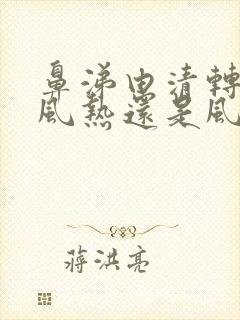 鼻涕由清轉
風熱還是風
蔣洪亮